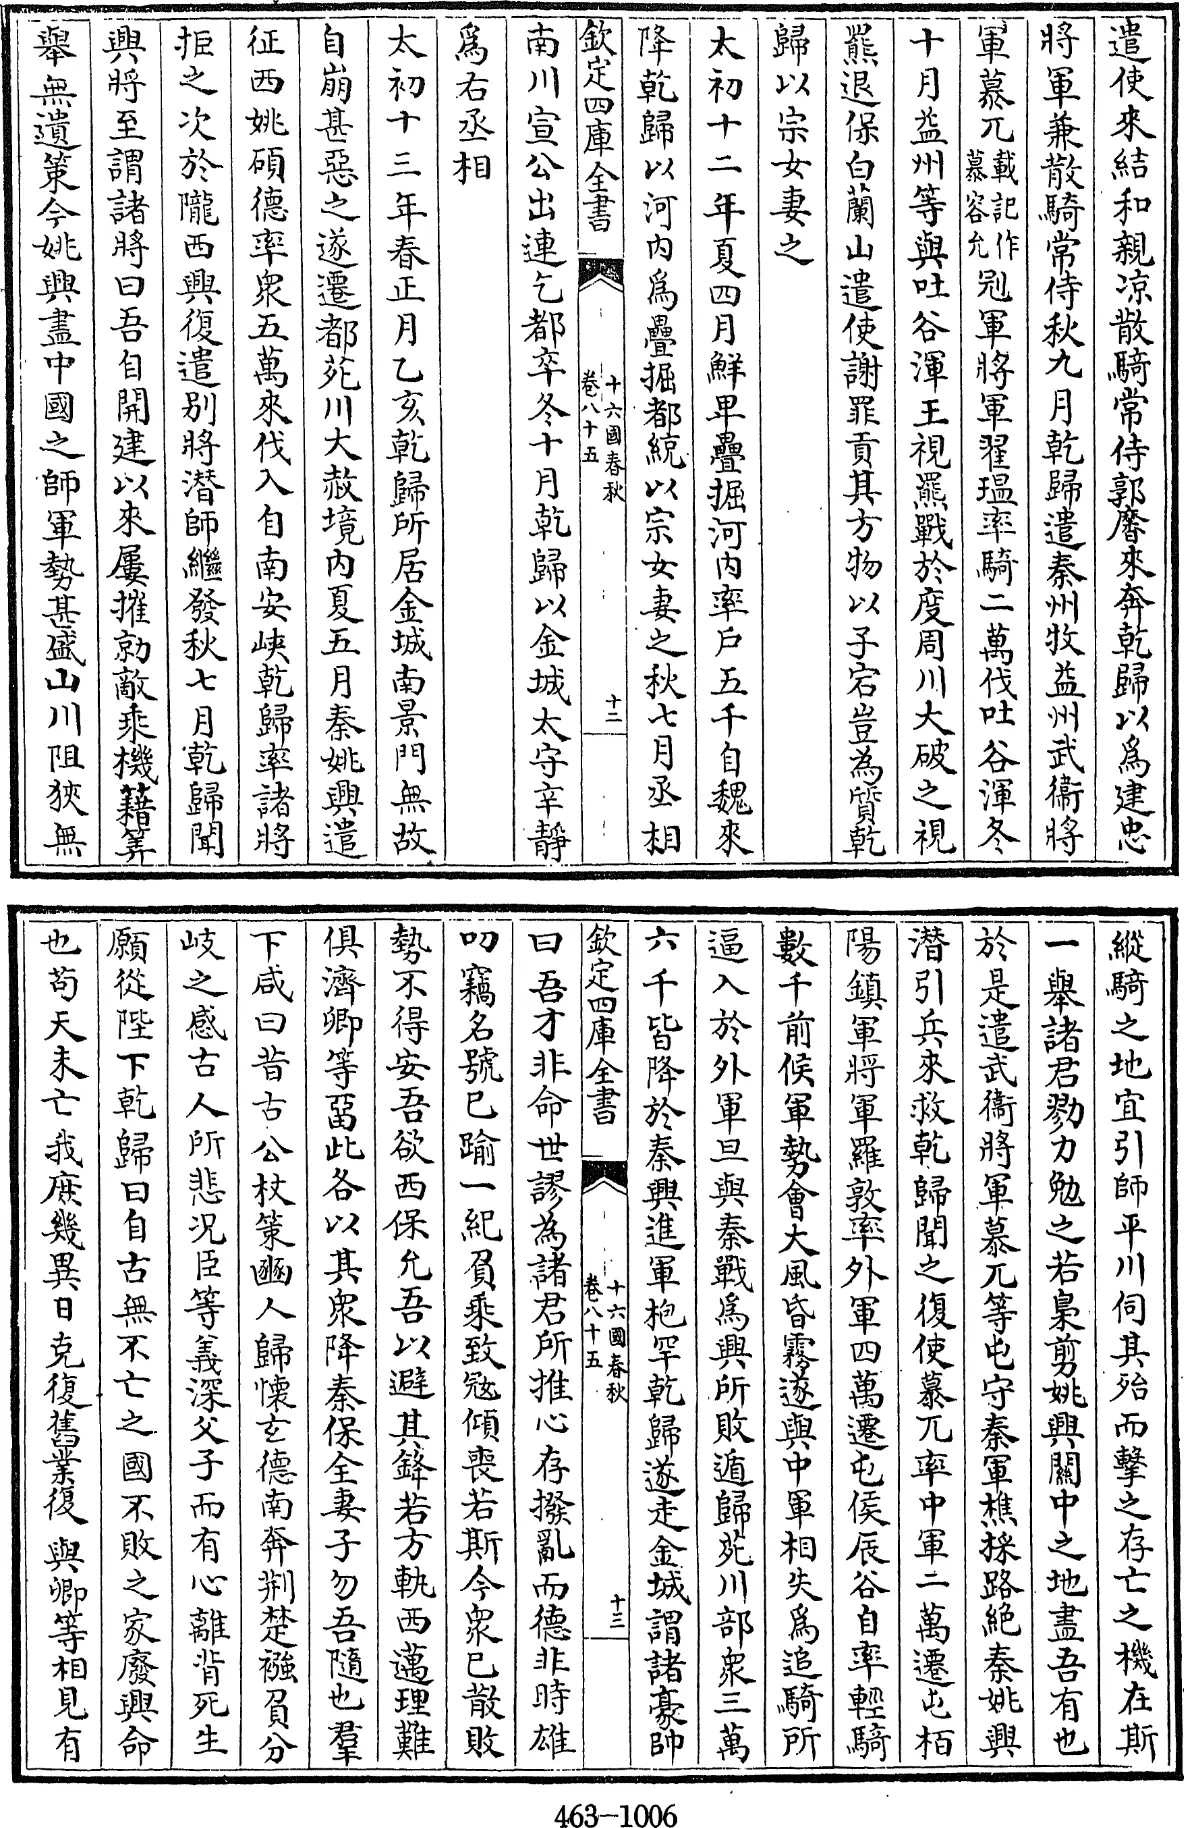 遣使來結和親凉散騎常侍郭黁來奔乾歸以爲建忠
將軍兼散騎常侍秋九月乾歸遣秦州牧益州武衞將
軍慕兀載記作慕容允冠軍將軍翟瑥率騎二萬伐吐谷渾冬
十月益州等與吐谷渾王視羆戰於度周川大破之視
羆退保白蘭山遣使謝罪貢其方物以子宕豈為質乾
歸以宗女妻之
太初十二年夏四月鮮卑疊掘河內率戶五千自魏來
降乾歸以河內爲疊掘都統以宗女妻之秋七月丞相
欽定四庫全書
十六國春秋
卷八十五
十二
南川宣公出連乞都卒冬十月乾歸以金城太守辛靜
爲右丞相
太初十三年春正月乙亥乾歸所居金城南景門無故
自崩甚惡之遂遷都苑川大赦境內夏五月秦姚興遣
征西姚碩德率衆五萬來伐入自南安峽乾歸率諸將
拒之次於隴西興復遣别將潜師繼發秋七月乾歸聞
興將至謂諸將曰吾自開建以來屢摧勍敵乘機藉筭
舉無遺策今姚興盡中國之師軍勢甚盛山川阻狹無
縱騎之地宜引師平川伺其殆而擊之存亡之機在斯
一舉諸君勠力勉之若梟剪姚興關中之地盡吾有也
於是遣武衞將軍慕兀等屯守秦軍樵採路絶秦姚興
潜引兵來救乾歸聞之復使慕兀率中軍二萬遷屯栢
陽鎮軍將軍羅敦率外軍四萬遷屯侯辰谷自率輕騎
數千前候軍勢會大風昏霧遂與中軍相失爲追騎所
逼入於外軍旦與秦戰爲興所敗遁歸苑川部衆三萬
六千皆降於秦興進軍枹罕乾歸遂走金城謂諸豪帥
欽定四庫全書
十六國春秋
卷八十五
十三
曰吾才非命世謬為諸君所推心存撥亂而德非時雄
叨竊名號已踰一紀負乘致寇傾喪若斯今衆已散敗
勢不得安吾欲西保允吾以避其鋒若方軌西邁理難
俱濟卿等畱此各以其衆降秦保全妻子勿吾隨也羣
下咸曰昔古公杖策豳人歸懷玄德南奔荆楚襁負分
岐之感古人所悲况臣等義深父子而有心離背死生
願從陛下乾歸曰自古無不亡之國不敗之家廢興命
也苟天未亡我庻幾異日克復舊業復與卿等相見有
463-1006